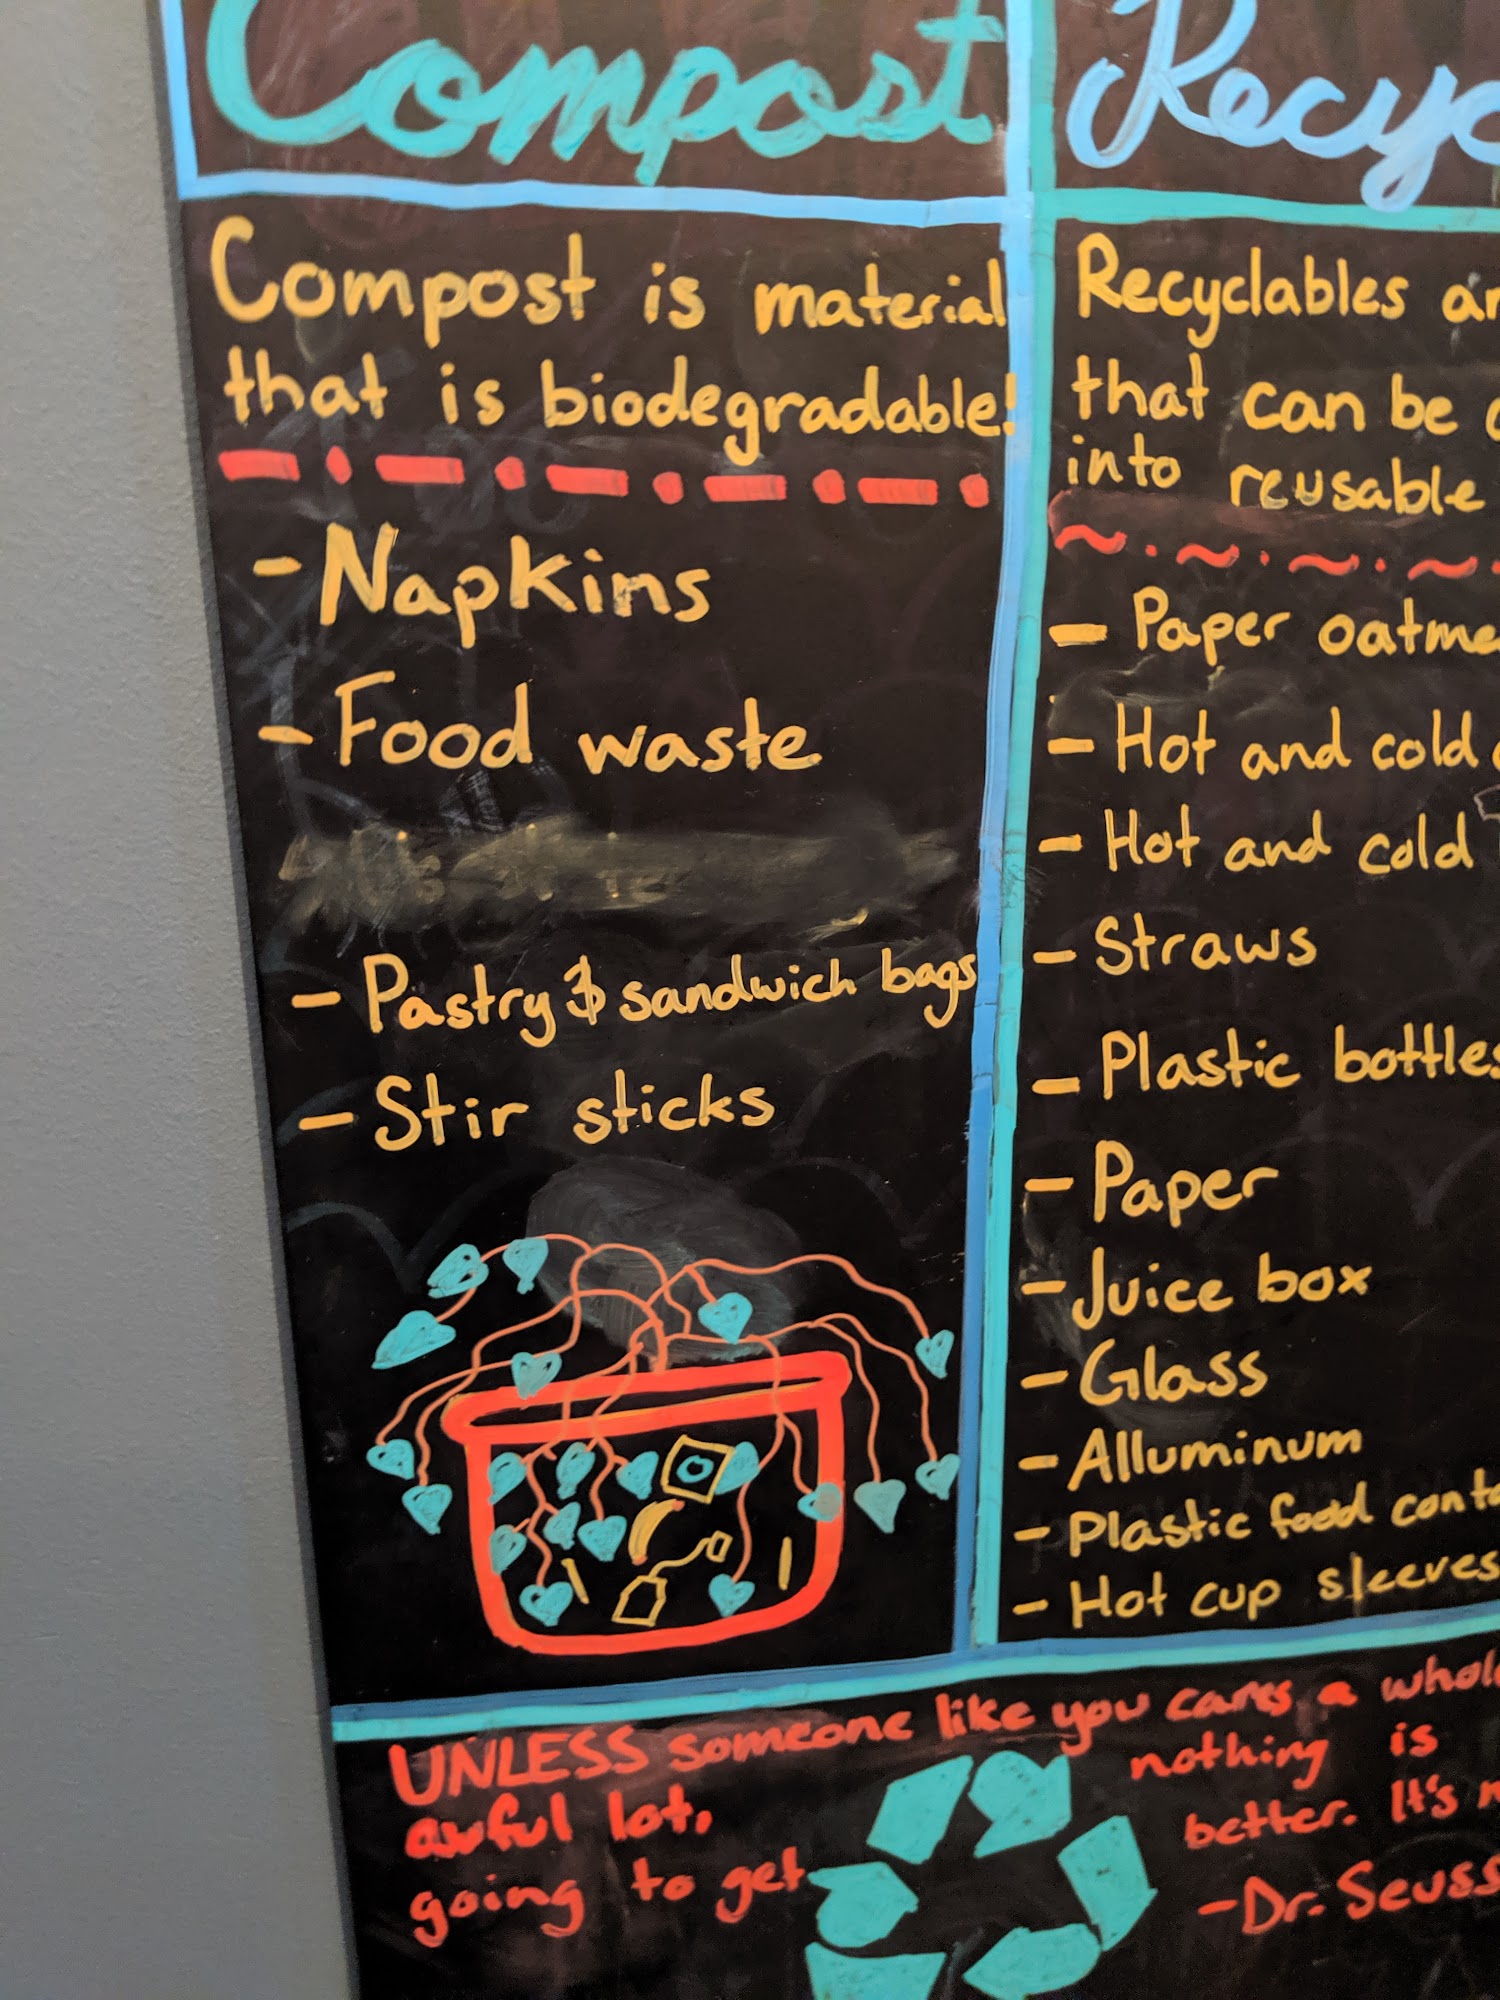 Compost
Compost is material
that is biodegradable!
- Napkins
- Food waste
- Pastry & sandwich bags
- Stir sticks
Recyc
Recyclables ar
that can be
into reusable
- Paper oatme
- Hot and cold
- Hot and cold
- Straws
- Plastic bottles
- Paper
- Juice box
- Glass
- Alluminum
- Plastic food conta
- Hot cup sleeves
UNLESS someone like you cares a whole
awful lot, nothing is
going to get better. It's n
-Dr. Seuss